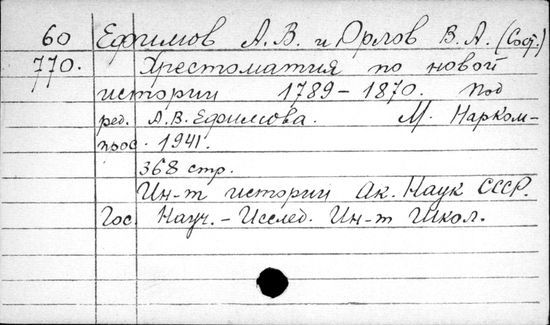 60 Ефимов А. В. и Орлов В. А. (Сост.)
770. Хрестоматия по новой
истории 1789 – 1870. Под
ред. А. В. Ефимова. М. Нарком-
прос. 1941.
368 стр.
Ин-т истории Ак. Наук СССР.
Гос. Науч. - Исслед. Ин-т Школ.